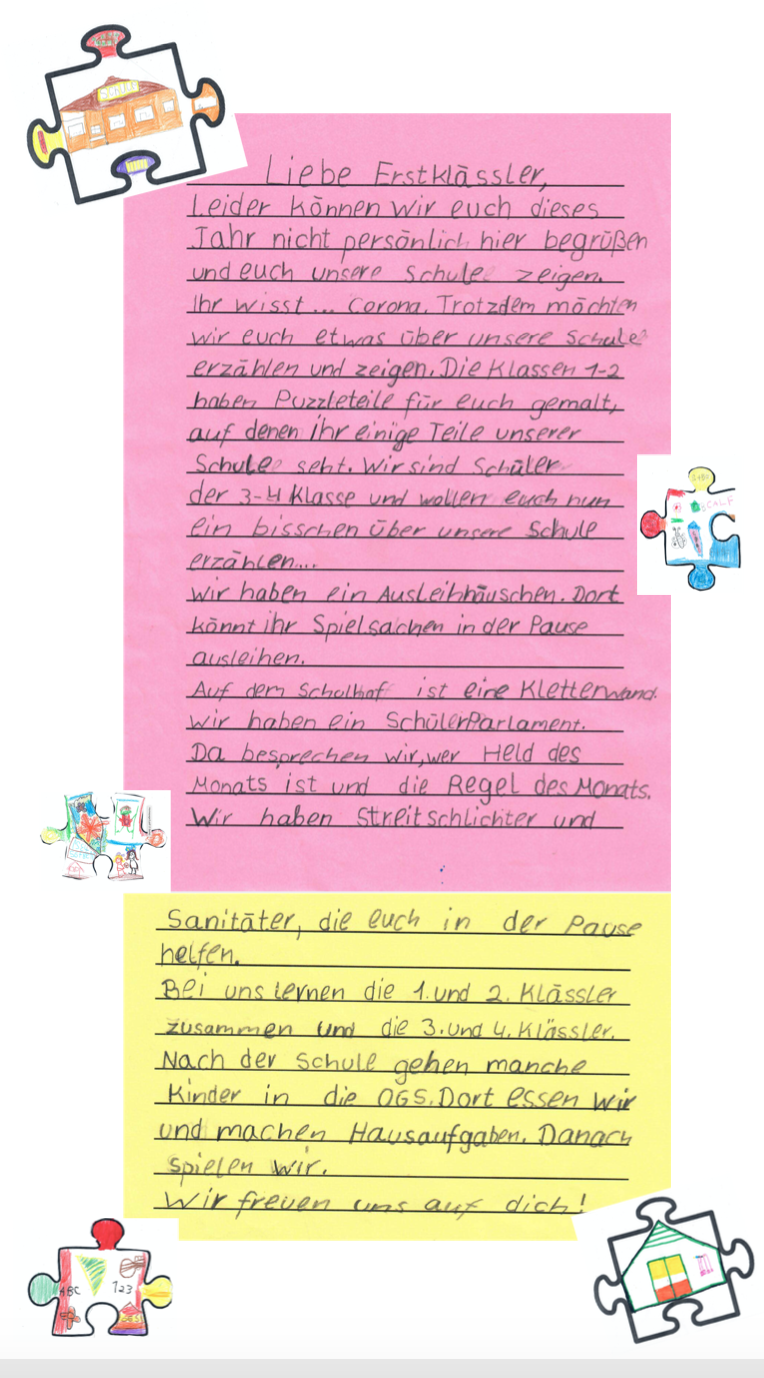 SCHULE
Liebe Erstklässler,
Leider können wir euch dieses
Jahr nicht persönlich hier begrüßen
und euch unsere Schule zeigen.
Ihr wisst... Corona. Trotzdem möchten
wir euch etwas über unsere Schule
erzählen und zeigen. Die Klassen 1-2
haben Puzzleteile für euch gemalt,
auf denen ihr einige Teile unserer
Schule seht. Wir sind Schüler
der 3-4 Klasse und wollen euch nun
ein bisschen über unsere Schule
erzählen....
Wir haben ein Ausleihhäuschen. Dort
könnt ihr Spielsachen in der Pause
ausleihen.
Auf dem Schulhof ist eine Kletterwand.
Wir haben ein SchülerParlament.
Da besprechen wir, wer Held des
Monats ist und die Regel des Monats.
Wir haben Streitschlichter und
Sanitäter, die euch in der Pause
helfen.
Bei uns lernen die 1. und 2. Klässler
zusammen und die 3. und 4. Klässler.
Nach der Schule gehen manche
Kinder in die OGS. Dort essen wir
und machen Hausaufgaben. Danach
spielen wir.
Wir freuen uns auf dich!
ABC
123